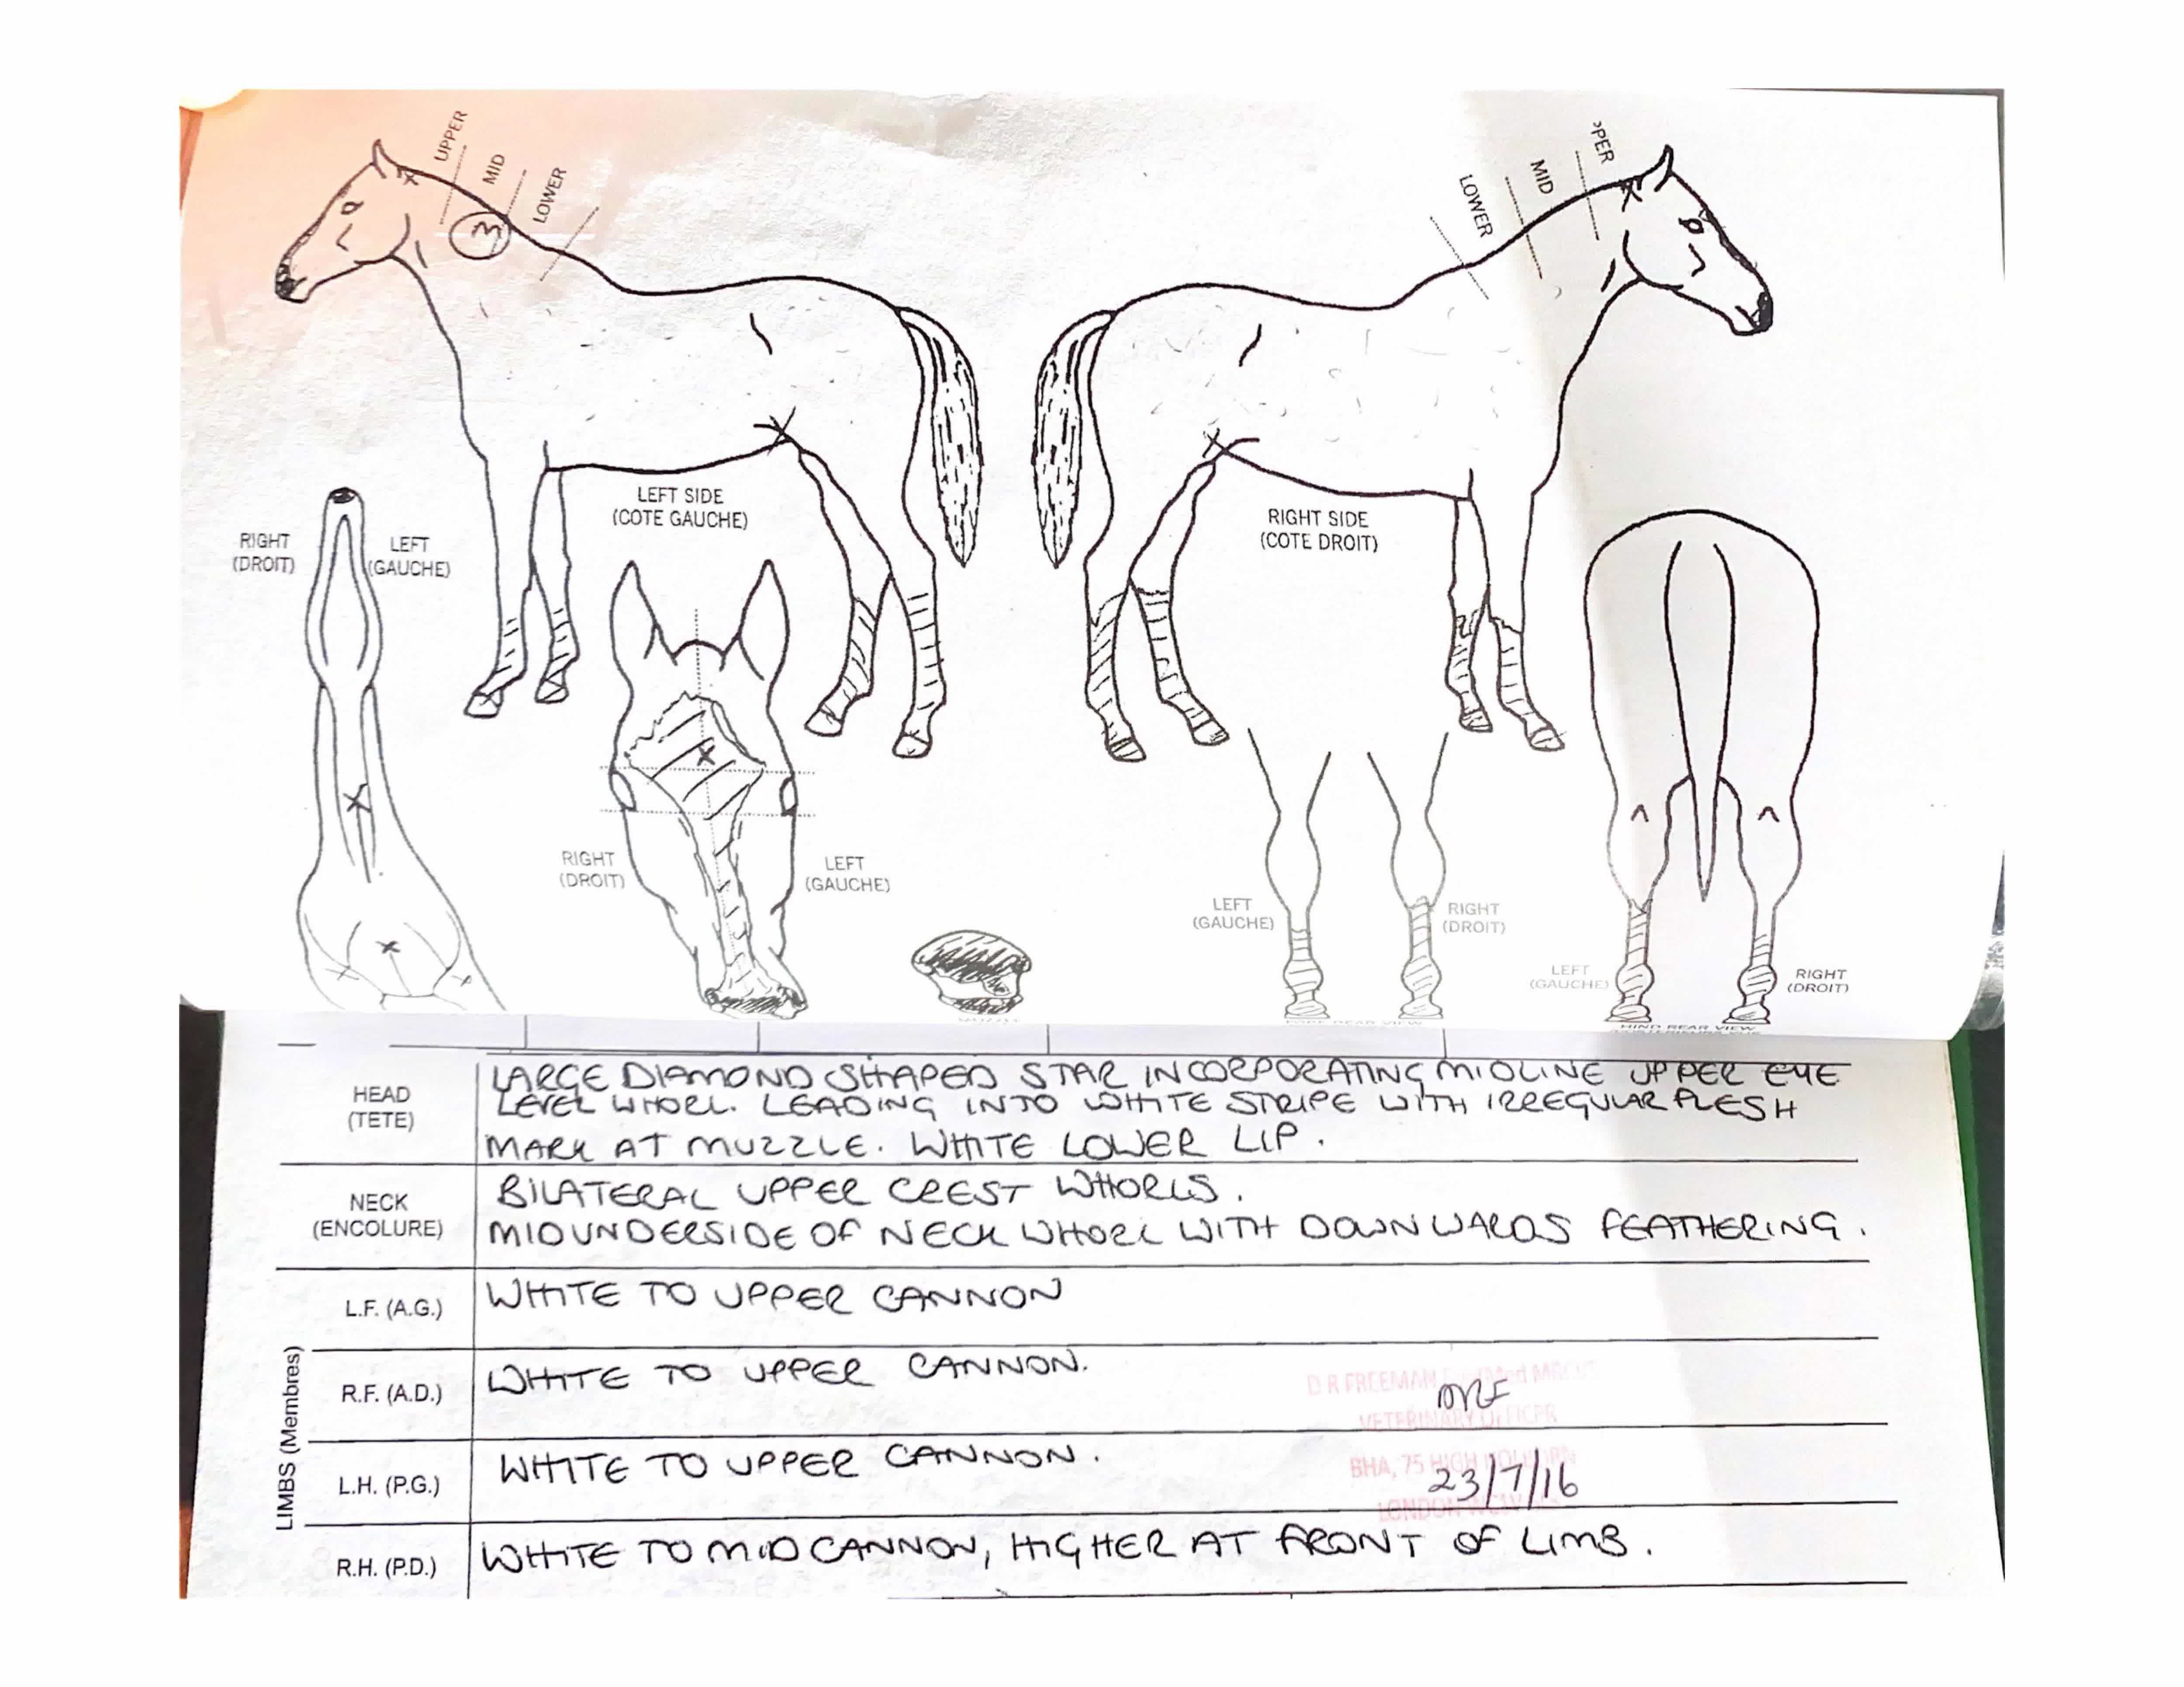 UPPER
MID
LOWER
3
PPER
MID
LOWER
LEFT SIDE
(COTE GAUCHE)
RIGHT SIDE
(COTE DROIT)
RIGHT
(DROIT)
LEFT
(GAUCHE)
RIGHT
(DROIT)
LEFT
(GAUCHE)
LEFT
(GAUCHE)
RIGHT
(DROIT)
LEFT
(GAUCHE)
RIGHT
(DROIT)
HIND REAR VIEW
HEAD
(TETE)
LARGE DIAMOND SHAPED STAR INCORPORATING MIDLINE UPPER EYE
LEVEL WHORL. LEADING INTO WHITE STRIPE WITH IRREGULAR FLESH
MARK AT MUZZLE. WHITE LOWER LIP.
NECK
(ENCOLURE)
BILATERAL UPPER CREST WHORLS.
MIDUNDERSIDE OF NECK WHORL WITH DOWNWARDS FEATHERING.
LIMBS (Membres)
L.F. (A.G.)
WHITE TO UPPER CANNON
R.F. (A.D.)
WHITE TO UPPER CANNON.
D R FREEMAN
DRF
VETERINARY OFFICER
L.H. (P.G.)
WHITE TO UPPER CANNON.
BHA, 75 HIGH HOLBORN
23/7/16
LONDON
R.H. (P.D.)
WHITE TO MID CANNON, HIGHER AT FRONT OF LIMB.